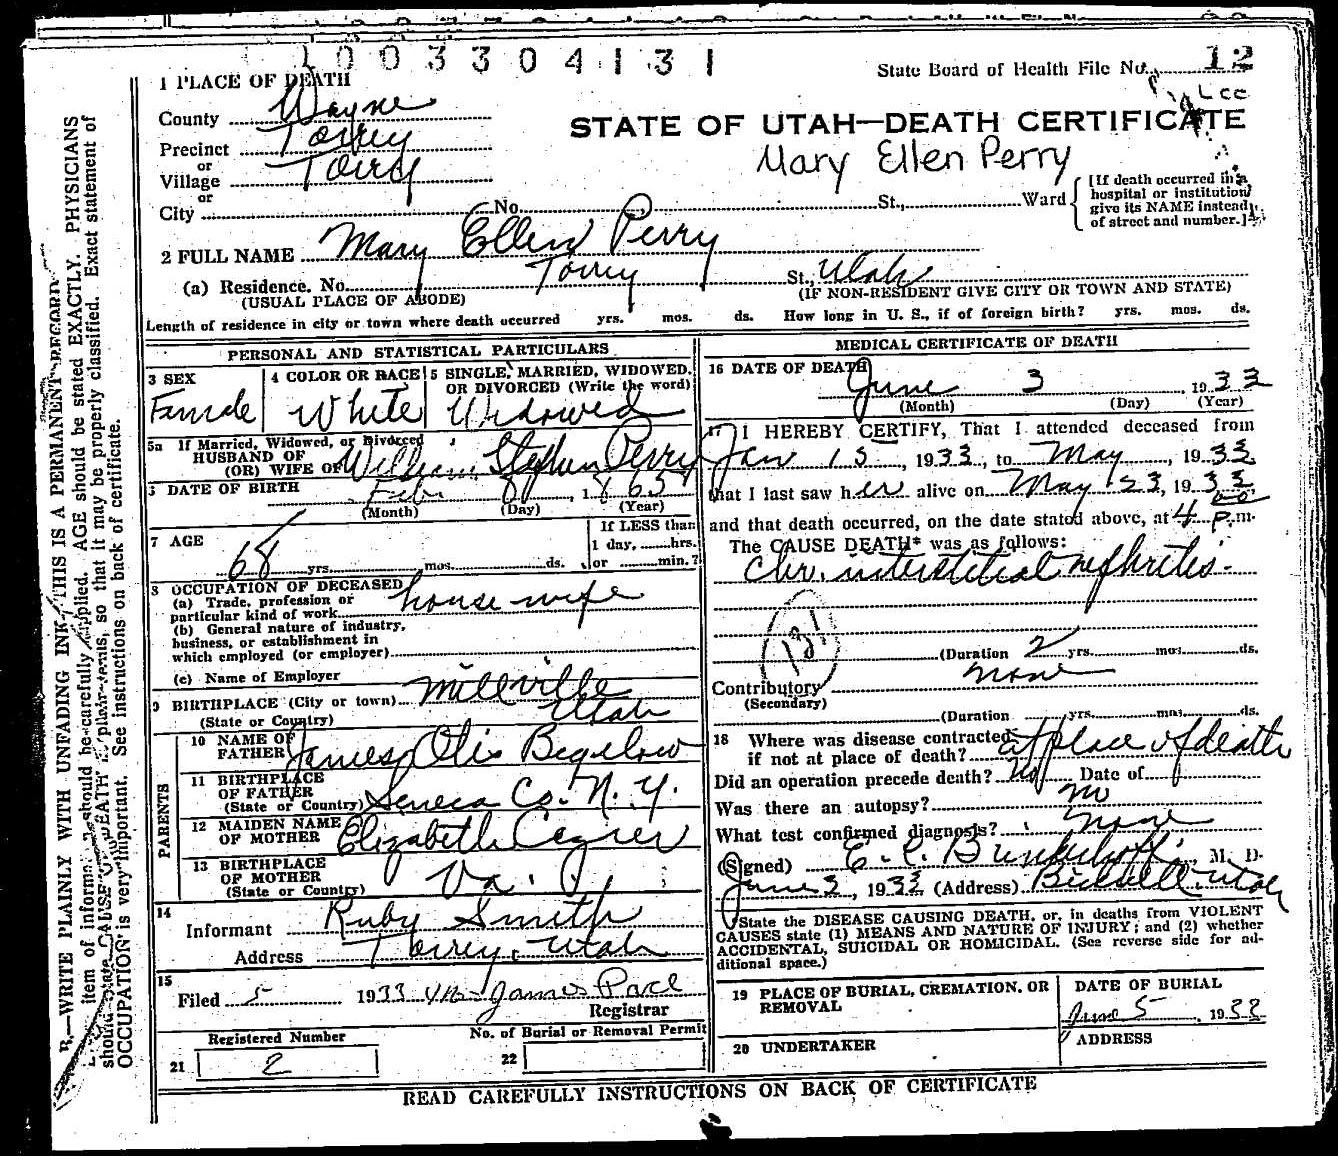 1003304131
State Board of Health File No. 12
1 PLACE OF DEATH
County Wayne
Precinct Torrey
or
Village Torrey
or
City No. St., Ward
STATE OF UTAH—DEATH CERTIFICATE
Mary Ellen Perry
[If death occurred in a
hospital or institution
give its NAME instead
of street and number.]
2 FULL NAME Mary Ellen Perry
(a) Residence. No. Torrey St., Utah
(USUAL PLACE OF ABODE) (IF NON-RESIDENT GIVE CITY OR TOWN AND STATE)
Length of residence in city or town where death occurred yrs. mos. ds. How long in U. S., if of foreign birth? yrs. mos. ds.
PERSONAL AND STATISTICAL PARTICULARS
3 SEX
Female
4 COLOR OR RACE
White
5 SINGLE, MARRIED, WIDOWED,
OR DIVORCED (Write the word)
Widowed
5a If Married, Widowed, or Divorced
HUSBAND OF
(OR) WIFE OF William Stephen Perry
6 DATE OF BIRTH Feb. 8, 1865
(Month) (Day) (Year)
7 AGE
68 yrs. mos. ds.
If LESS than
1 day, hrs.
or min.?
8 OCCUPATION OF DECEASED
(a) Trade, profession or
particular kind of work house wife
(b) General nature of industry,
business, or establishment in
which employed (or employer)
(c) Name of Employer
9 BIRTHPLACE (City or town) Millville
(State or Country) Utah
PARENTS
10 NAME OF
FATHER James Otis Bigelow
11 BIRTHPLACE
OF FATHER
(State or Country) Seneca Co. N. Y.
12 MAIDEN NAME
OF MOTHER Elizabeth
13 BIRTHPLACE
OF MOTHER
(State or Country) Va.
14
Informant Ruby Smith
Address Torrey, Utah
15
Filed 5 1933 Mrs James Pace
Registrar
Registered Number
21 2
No. of Burial or Removal Permit
22
MEDICAL CERTIFICATE OF DEATH
16 DATE OF DEATH
June 3 1933
(Month) (Day) (Year)
17 I HEREBY CERTIFY, That I attended deceased from
Jan 15, 1933, to May, 1933.
that I last saw her alive on May 23, 1933
and that death occurred, on the date stated above, at 4 00 p.m.
The CAUSE DEATH* was as follows:
Chr. interstitial nephritis.
131
(Duration 2 yrs. mos. ds.
Contributory none
(Secondary)
(Duration yrs. mos. ds.
18 Where was disease contracted
if not at place of death? at place of death
Did an operation precede death? no Date of
Was there an autopsy? no
What test confirmed diagnosis? none
(Signed) E. C. M. D.
June 3, 1933 (Address) Bicknell, Utah
*State the DISEASE CAUSING DEATH, or, in deaths from VIOLENT
CAUSES state (1) MEANS AND NATURE OF INJURY; and (2) whether
ACCIDENTAL, SUICIDAL OR HOMICIDAL. (See reverse side for ad-
ditional space.)
19 PLACE OF BURIAL, CREMATION, OR
REMOVAL
DATE OF BURIAL
June 5, 1933
20 UNDERTAKER
ADDRESS
READ CAREFULLY INSTRUCTIONS ON BACK OF CERTIFICATE
WRITE PLAINLY WITH UNFADING INK—THIS IS A PERMANENT RECORD
item of information should be carefully supplied. AGE should be stated EXACTLY. PHYSICIANS
should state CAUSE OF DEATH in plain terms, so that it may be properly classified. Exact statement of
OCCUPATION is very important. See instructions on back of certificate.